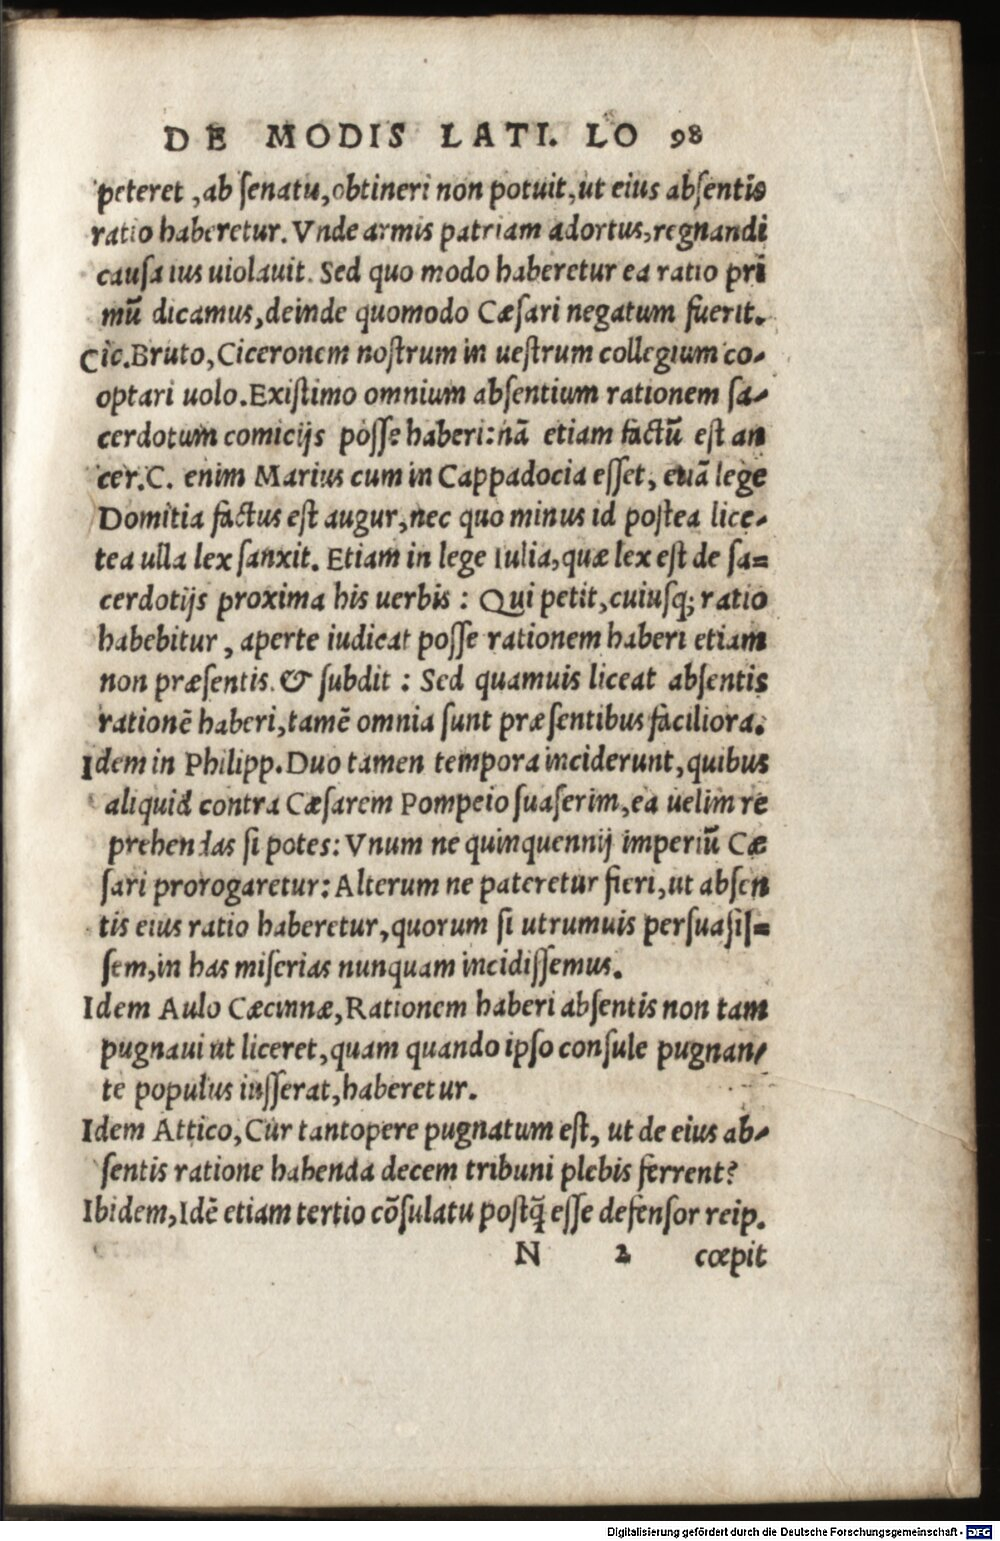 DE MODIS LATI. LO 98
peteret, ab senatu, obtineri non potuit, ut eius absentis
ratio haberetur. Vnde armis patriam adortus, regnandi
causa ius uiolauit. Sed quo modo haberetur ea ratio pri
mũ dicamus, deinde quomodo Cæsari negatum fuerit.
Cic. Bruto, Ciceronem nostrum in uestrum collegium co-
optari uolo. Existimo omnium absentium rationem sa-
cerdotum comicijs posse haberi: nã etiam factũ est an
cer. C. enim Marius cum in Cappadocia esset, etiã lege
Domitia factus est augur, nec quo minus id postea lice-
tea ulla lex sanxit. Etiam in lege Iulia, quæ lex est de sa=
cerdotijs proxima his uerbis : Qui petit, cuiusq; ratio
habebitur, aperte iudicat posse rationem haberi etiam
non præsentis. & subdit : Sed quamuis liceat absentis
rationẽ haberi, tamẽ omnia sunt præsentibus faciliora.
Idem in Philipp. Duo tamen tempora inciderunt, quibus
aliquid contra Cæsarem Pompeio suaserim, ea uelim re
prehendas si potes: Vnum ne quinquennij imperiũ Cæ
sari prorogaretur: Alterum ne pateretur fieri, ut absen
tis eius ratio haberetur, quorum si utrumuis persuasis=
sem, in has miserias nunquam incidissemus.
Idem Aulo Cæcinnæ, Rationem haberi absentis non tam
pugnaui ut liceret, quam quando ipso consule pugnan-
te populus iusserat, haberetur.
Idem Attico, Cur tantopere pugnatum est, ut de eius ab-
sentis ratione habenda decem tribuni plebis ferrent?
Ibidem, Idẽ etiam tertio cõsulatu postq̃ esse defensor reip.
N 2 cœpit
Digitalisierung gefördert durch die Deutsche Forschungsgemeinschaft - DFG